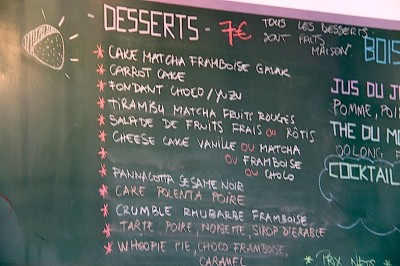 DESSERTS - 7€
TOUS LES DESSERTS
SONT FAITS
MAISON
* CAKE MATCHA FRAMBOISE
* CARROT CAKE
* FONDANT CHOCO / YUZU
* TIRAMISU MATCHA FRUITS ROUGES
* SALADE DE FRUITS FRAIS OU RÔTIS
* CHEESE CAKE VANILLE OU MATCHA
* OU FRAMBOISE
* OU CHOCO
* PANNACOTTA SESAME NOIR
* CAKE POLENTA POIRE
* CRUMBLE RHUBARBE FRAMBOISE
* TARTE POIRE, NOISETTE, SIROP D'ERABLE
* WHOOPIE PIE, CHOCO FRAMBOISE,
CARAMEL
BOIS
JUS DU J
POMME, POI
THE DU MO
OOLONG,
COCKTAIL
* PRIX NETS *